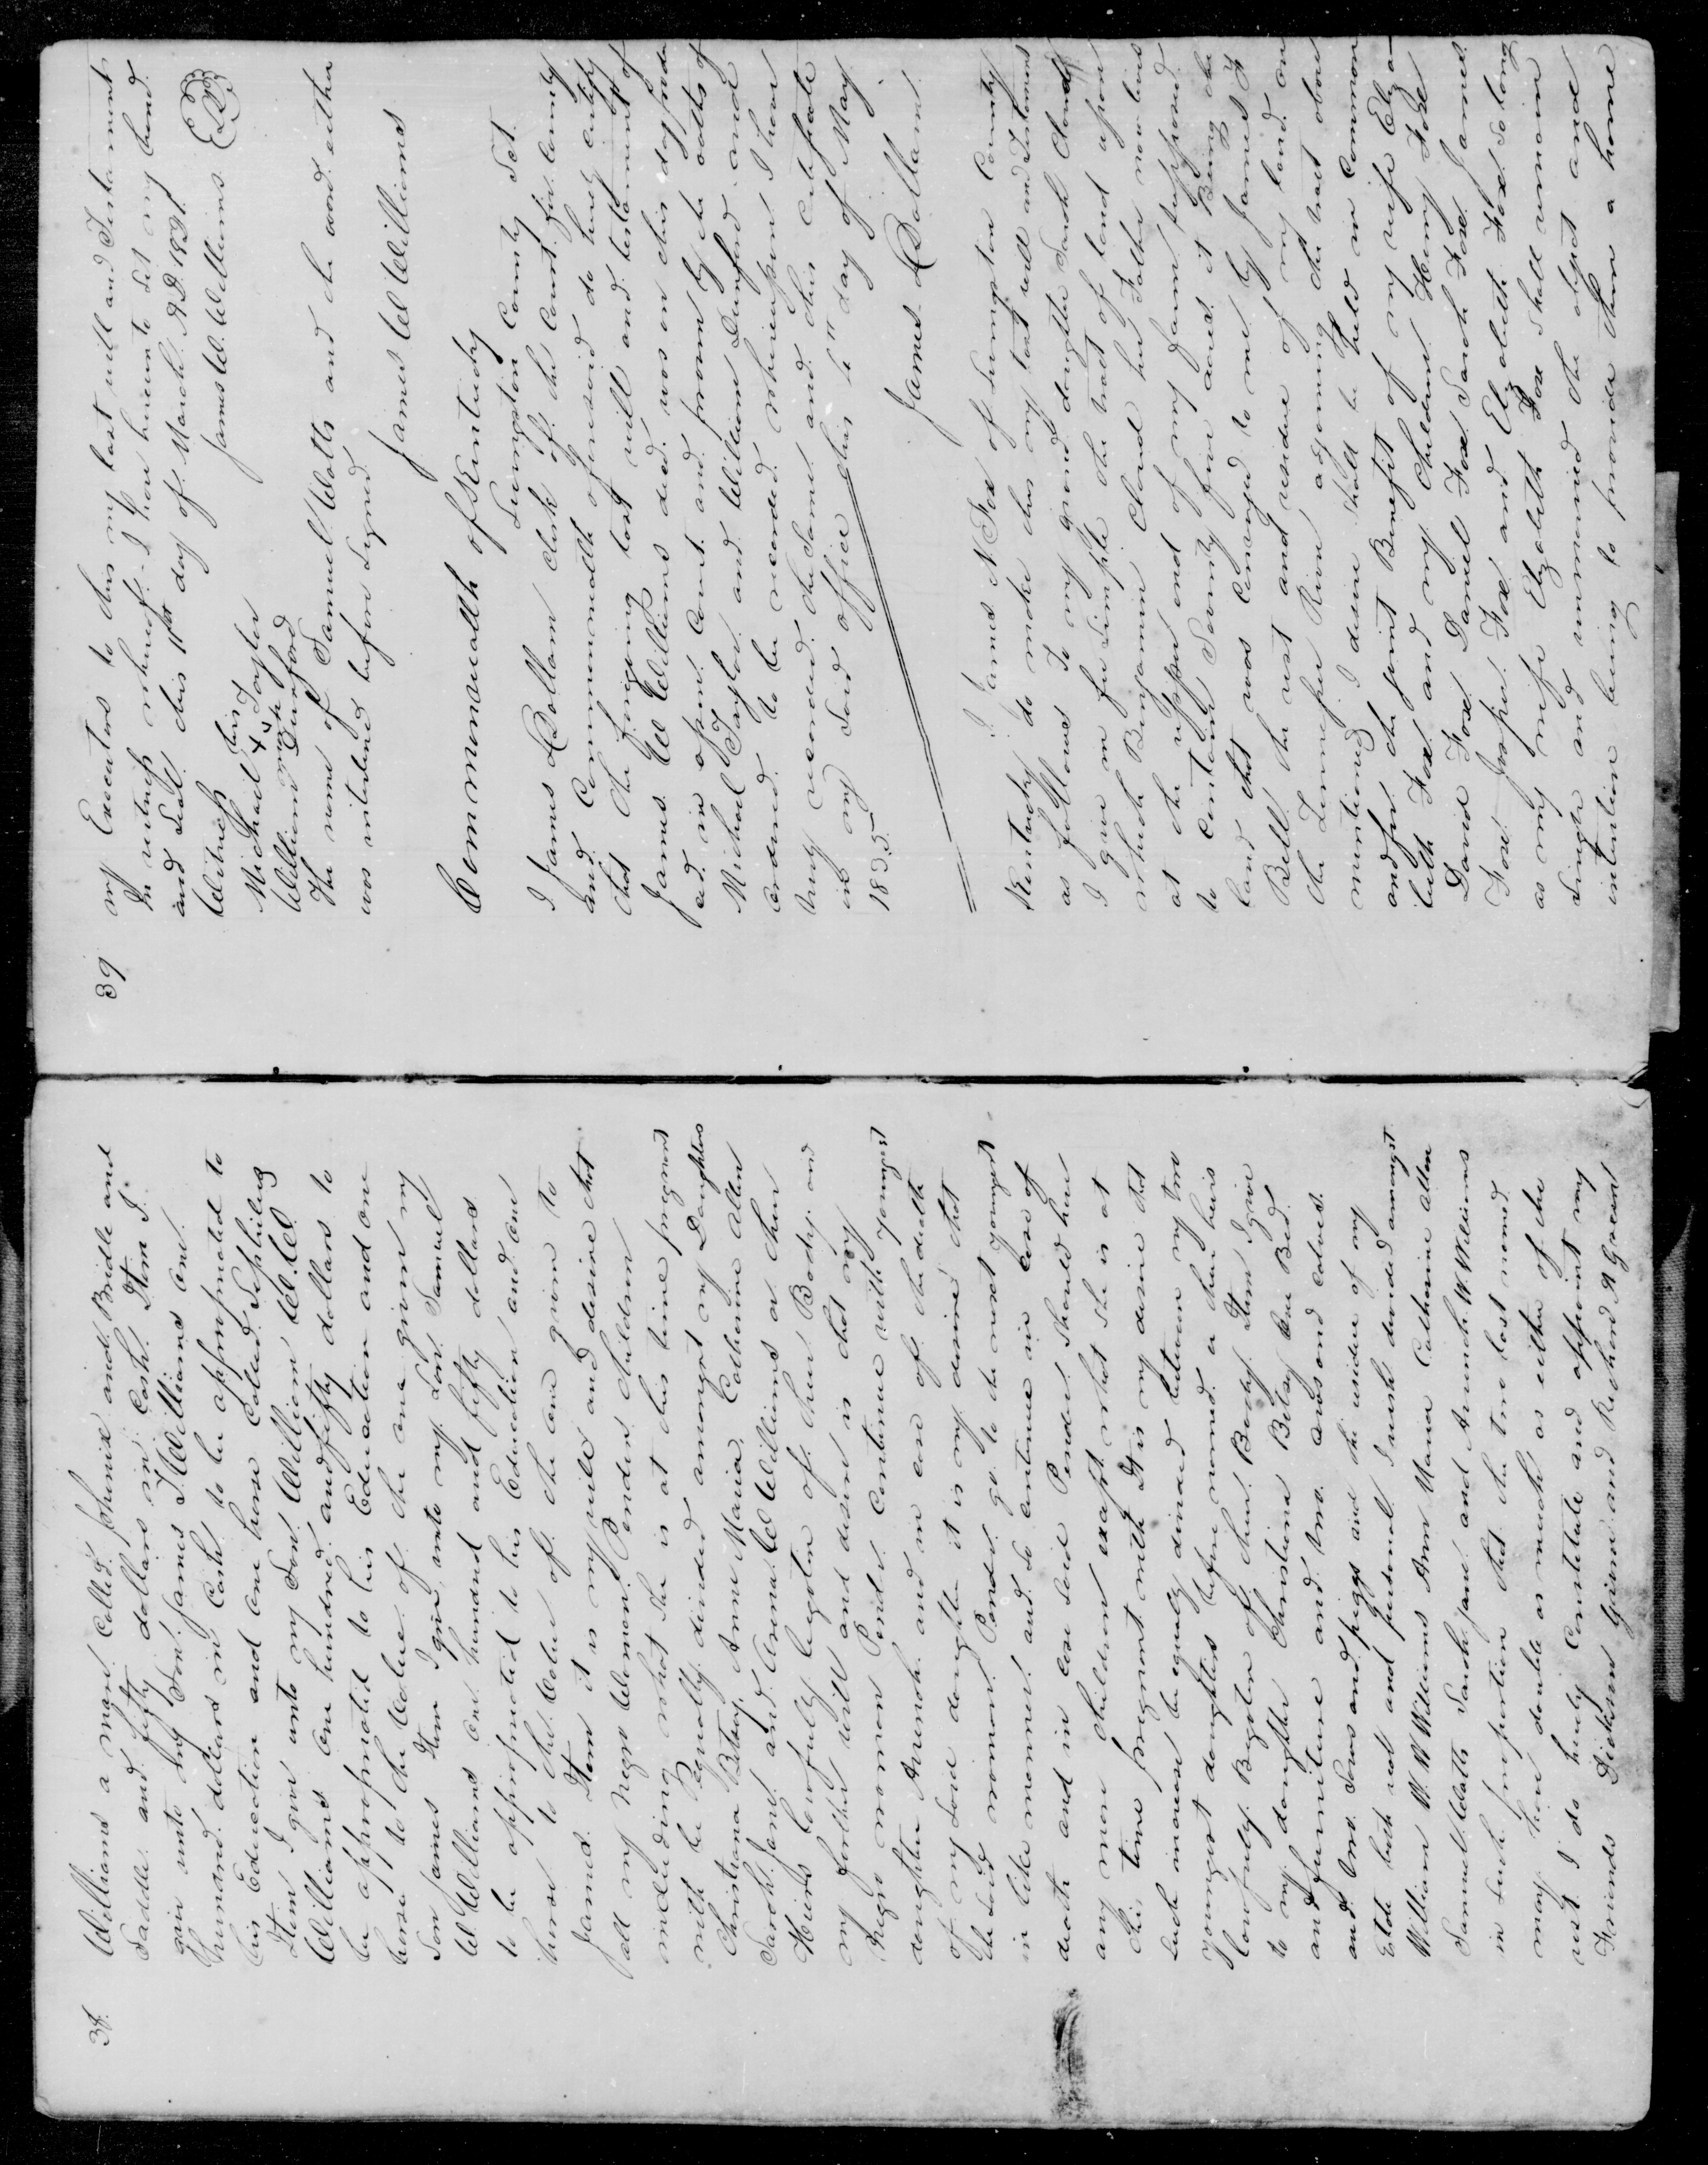 38
Williams a man Called Phenix and Bridle and
Saddle and fifty dollars in Cash. Item I
give unto my Son James I Williams one
hunard dollars in Cash to be appropriated to
his Education and one horse Called
Item I give unto my Son William W. W.
Williams one hundred and fifty dollars to
be appropriated to his Education and one
horse to the Value of the one given my
Son James Item I give unto my Son Samuel
W Williams one hunard and fifty dollars
to be appropriated to his Education and one
horse to the Value of the one given to
James. Item it is my will and desire that
all my Negro Women Pender children
including what she is at this time pregnant
with be Equally divided amongst my Daughters
Christiana Betsy, Ann Maria, Catharine Allen
Sarah Jane and W Williams or their
Heirs lawfully begotten of their Body and
my further will and desire is that my
Negro woman Pender Continue with youngest
daughter and in case of the death
of my said daughter it is my desire that
the said woman Pender go to the next youngest
in like manner and so continue in case of
death and in case said Pender should have
any more children except what she is at
this time pregnant with It is my desire that
such increase be equally divided between my two
youngest daughters before named or their heirs
lawfuly Begoten of their Bodys. Item I give
to my daughter Christiana Betsy one Bed
and furniture and two cows and calves
and two Sows and piggs and the residue of my
Estate both real and personal I wish devided amongst
William W. W Williams Ann Maria Catharine Allen
Samuel Watts Sarah Jane and W Williams
in such proportion that the two last named
may have double as much as either of the
rest I do hereby Constitute and appoint my
Friends Dickson Given and Richard A Grant
39
my Executors to this my last will and Testament
In witness whereof I have hereunto Set my hand
and Seal this 11th day of March A.D. 1831.
Witness James W. Williams Seal
Michael his X mark Taylor
William Dunford
The name of Samuel Watts and the word either
was interlined before signed
James W Williams
Commonwealth of Kentucky
Livingston County Set.
I James L Dallam Clerk of the Court for County
and Commonwealth aforesaid do hereby certify
that the foregoing last will and testament of
James W Williams decd. was on this day produ
ced in open Court and proven by the oaths of
Michael Taylor and William Dunford and
ordered to be recorded whereupon I have
truly recorded the Same and this certificate
in my said office this 6th day of May
1833
James L Dallam
I James N Fox of Livingston County
Kentucky do make this my last will and Testament
as follows To my grand daughter Sarah
I give in fee Simple the tract of land upon
which Benjamin her Father now lives
at the upper end of my farm supposed
to Contain Seventy five acres it Being the
land that was Conveyed to me by James F
Bell the rest and residue of my land on
the Tennessee River adjoining the tract above
mentioned I desire shall be held in Common
and for the joint Benefit of my wife Eliza
beth Fox and my Children Henry Fox
David Fox Daniel Fox Sarah Fox James
Fox Jasper Fox and Elizabeth Fox So long
as my wife Elizabeth Fox shall remain
single and unmarried the object and
intention being to provide them a home